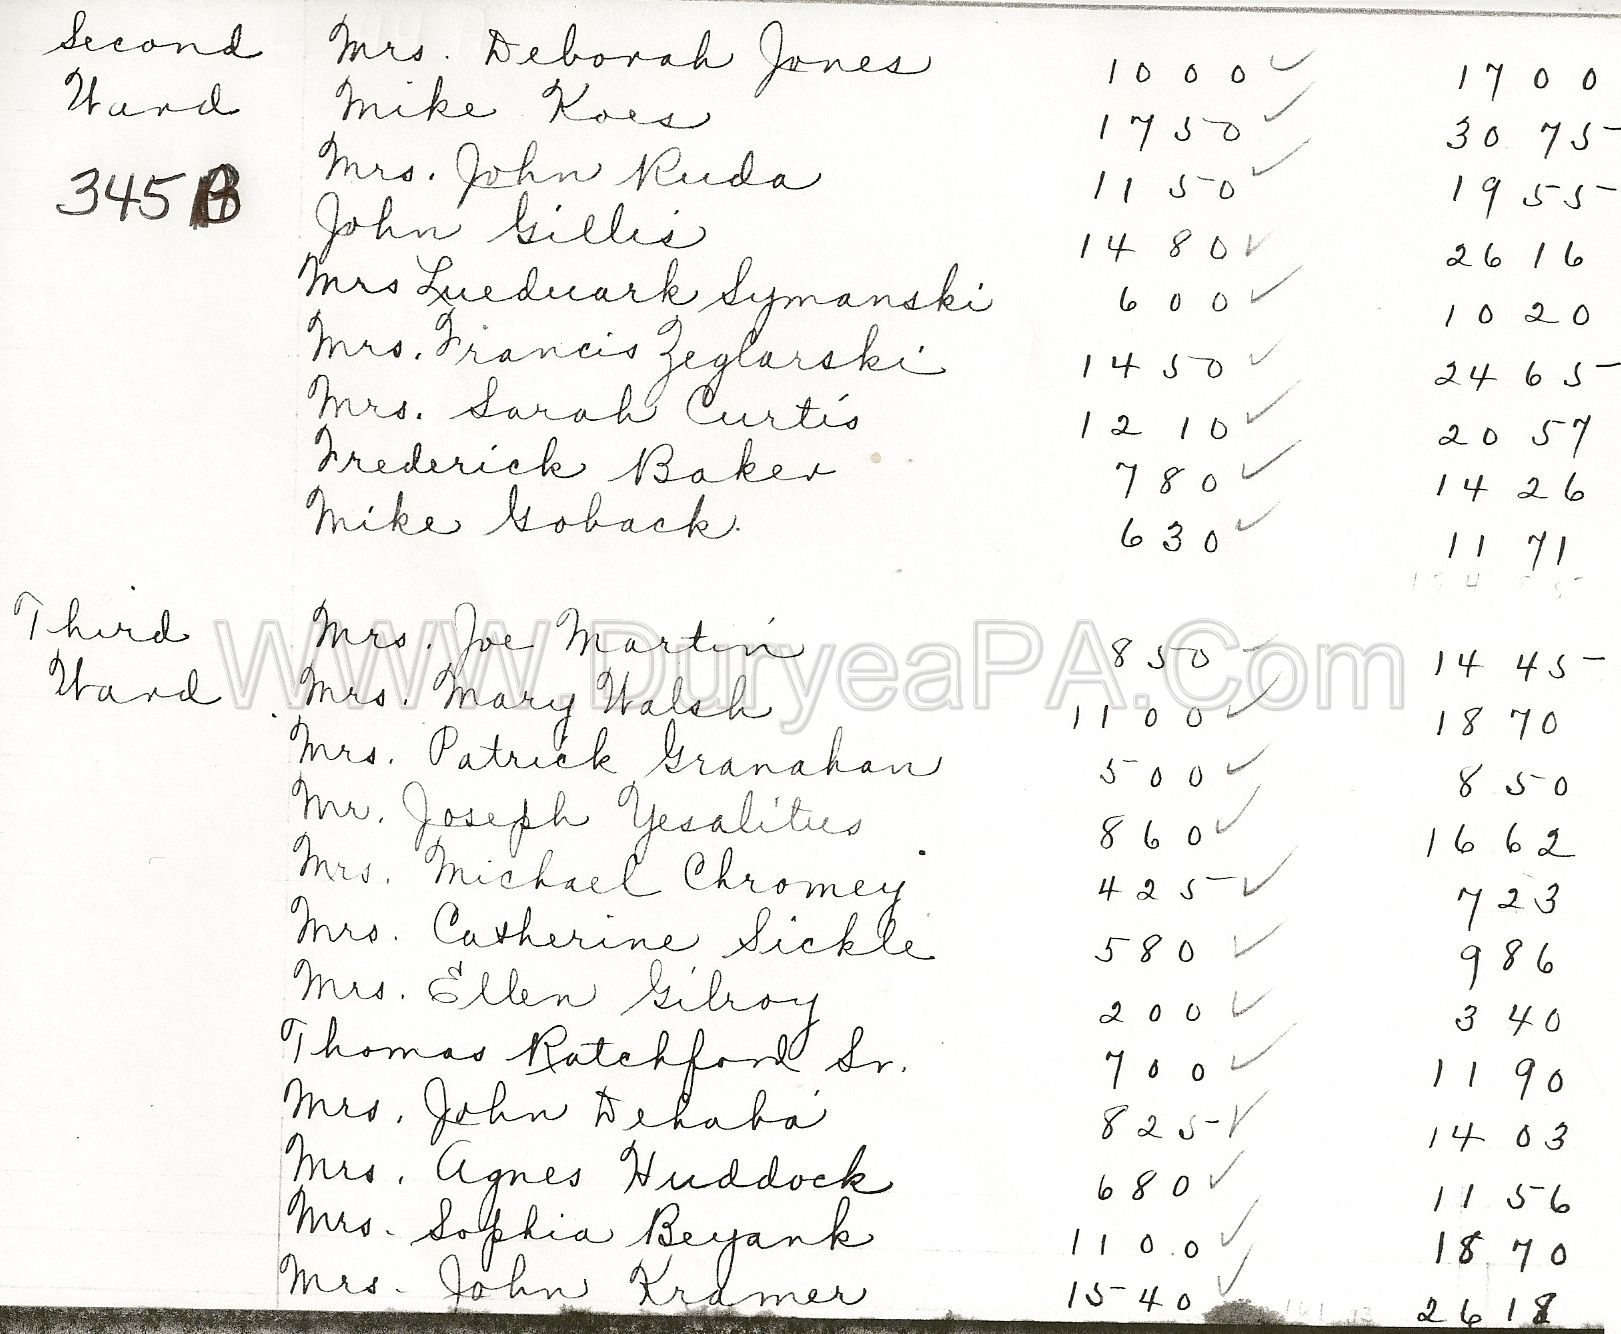 Second Mrs. Deborah Jones 1000 ✓ 1700
Ward Mike Koes 1750 ✓ 3075
Mrs. John Ruda 1150 ✓ 1955
345 B John Gillis 1480 ✓ 2616
Mrs Lueduark Symanski 600 ✓ 1020
Mrs. Francis Zeglarski 1450 ✓ 2465
Mrs. Sarah Curtis 1210 ✓ 2057
Frederick Baker 780 ✓ 1426
Mike Goback. 630 ✓ 1171
Third Mrs. Joe Martin 850 ✓ 1445
WWW.DuryeaPA.Com
Ward Mrs. Mary Walsh 1100 ✓ 1870
Mrs. Patrick Granahan 500 ✓ 850
Mr. Joseph Yesalitus 860 ✓ 1662
Mrs. Michael Chromey 425 ✓ 723
Mrs. Catherine Sickle 580 ✓ 986
Mrs. Ellen Gilroy 200 ✓ 340
Thomas Ratchford Sr. 700 ✓ 1190
Mrs. John Dehaba 825 ✓ 1403
Mrs. Agnes Huddock 680 ✓ 1156
Mrs. Sophia Beyank 1100 ✓ 1870
Mrs. John Kramer 1540 ✓ 2618